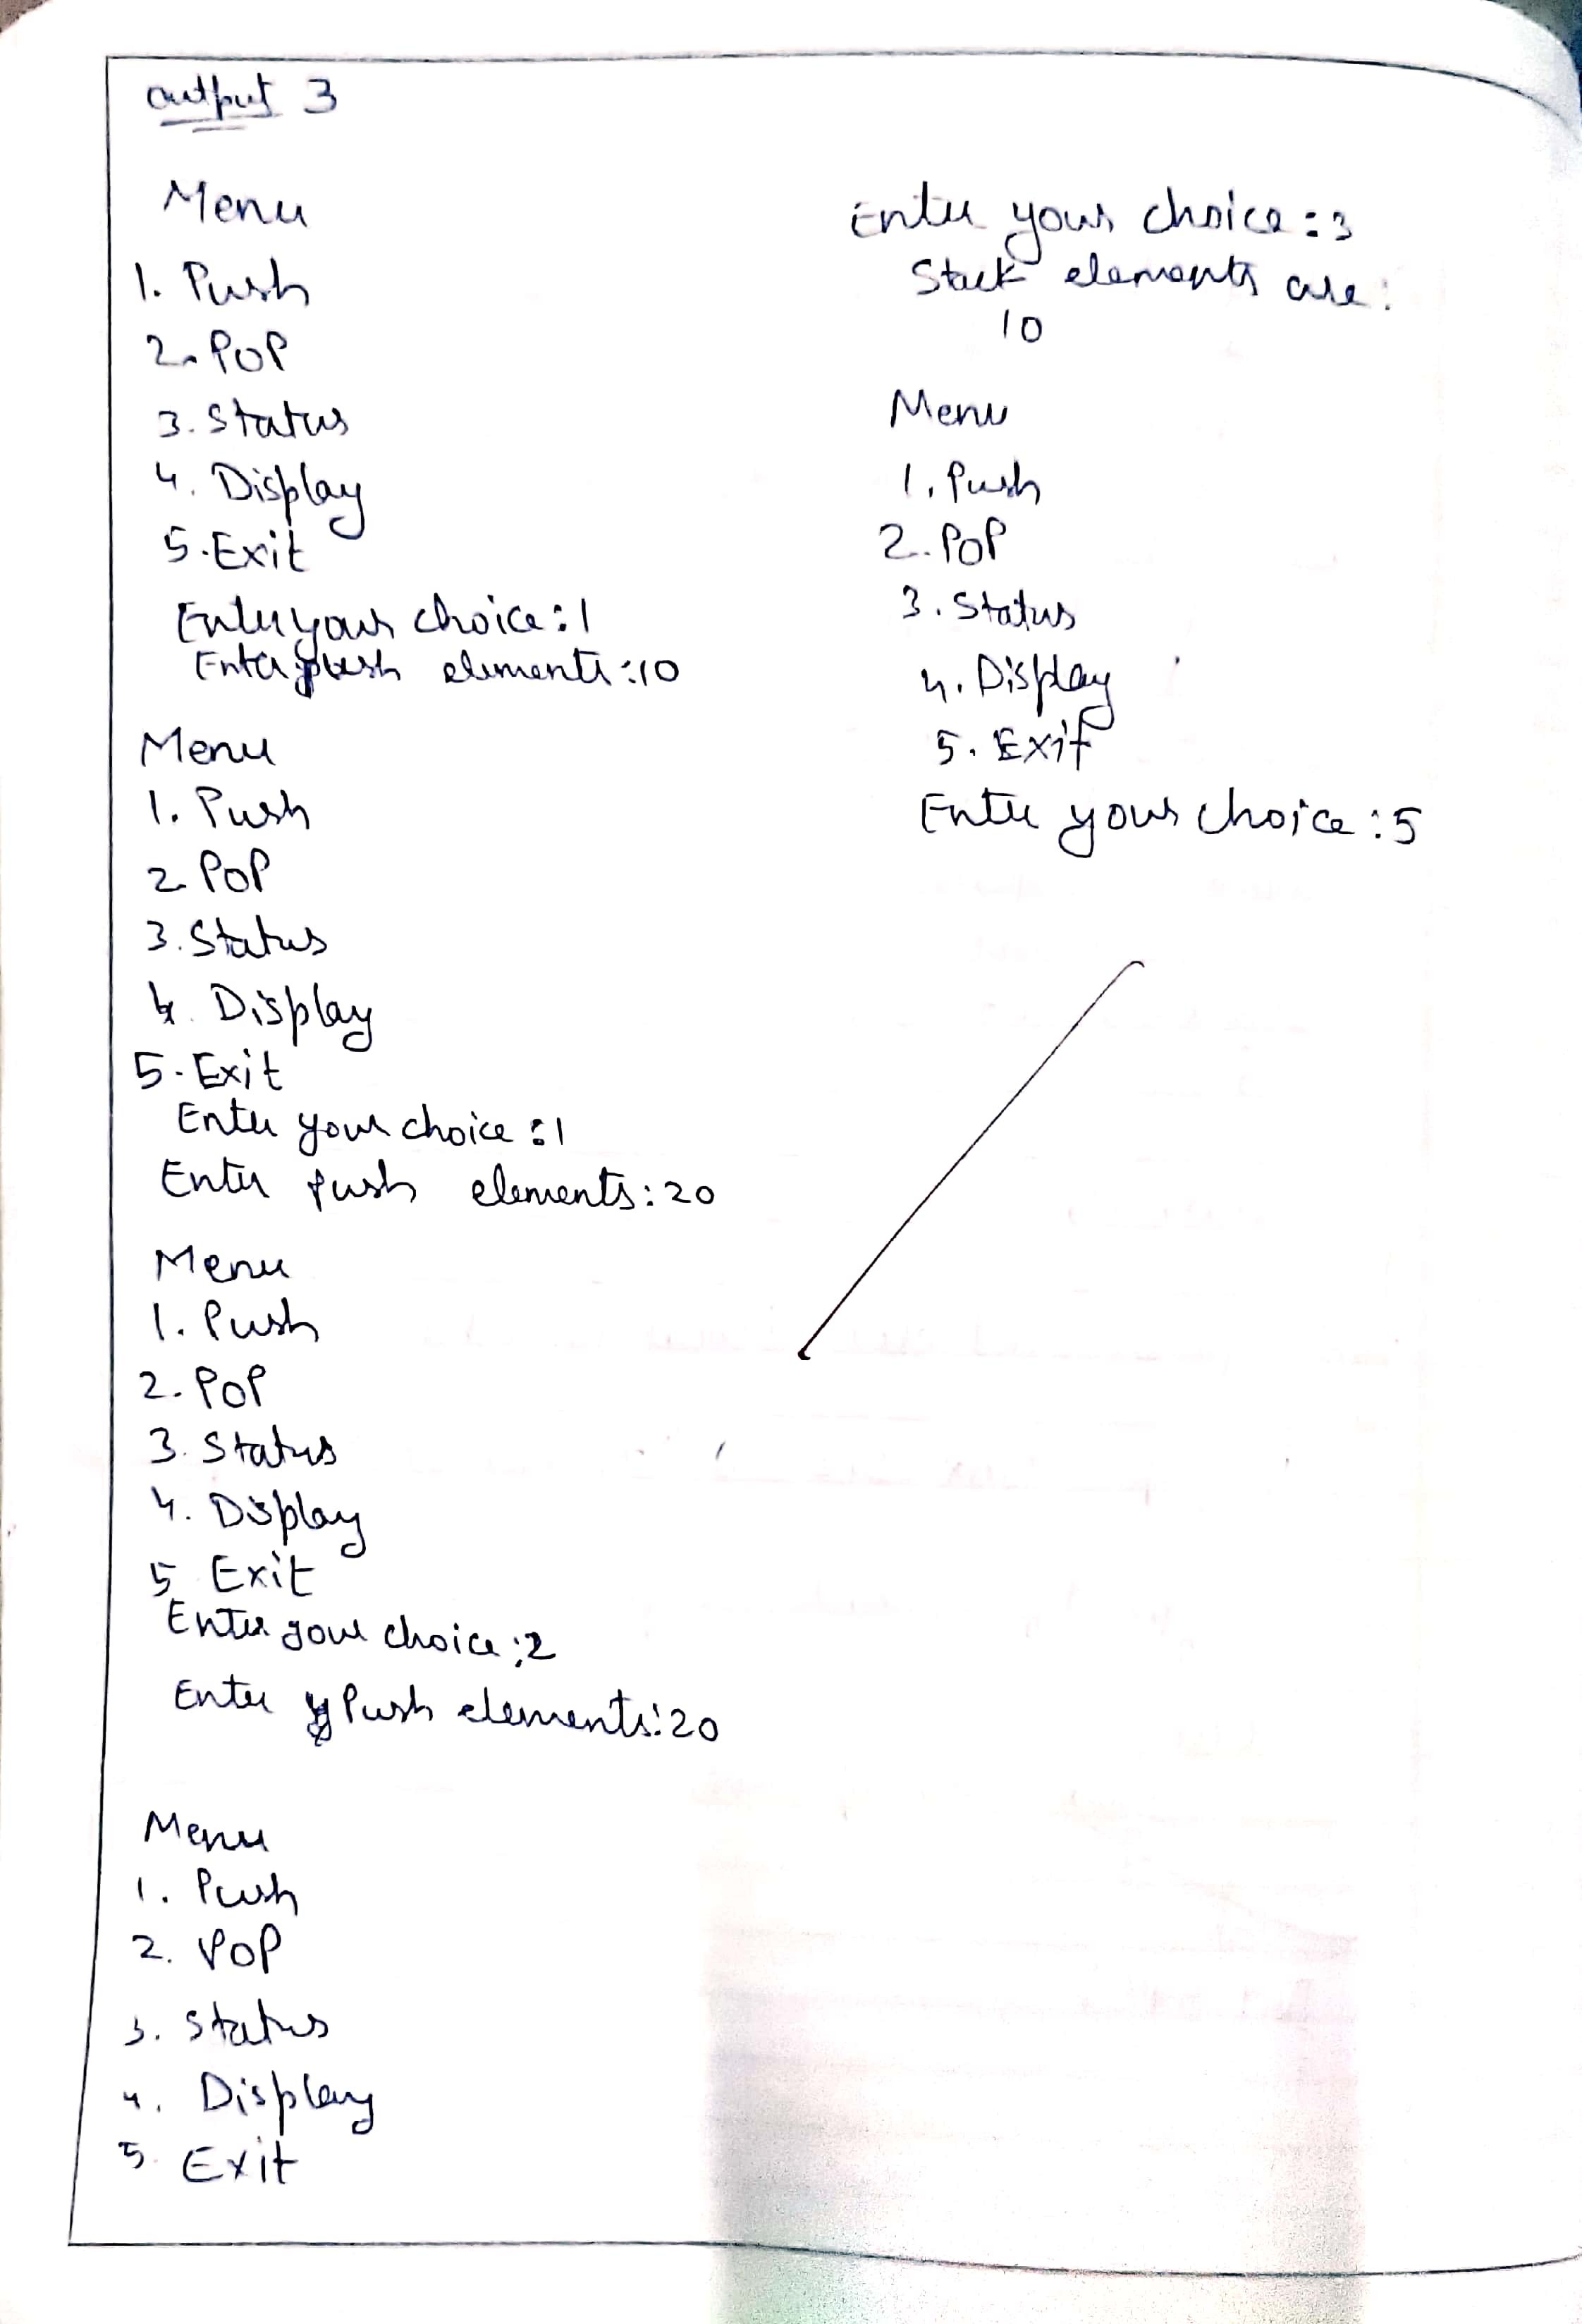 output 3
Menu
1. Push
2. POP
3. Status
4. Display
5. Exit
Enter your choice : 1
Enter push elements : 10
Menu
1. Push
2. POP
3. Status
4. Display
5. Exit
Enter your choice : 1
Enter push elements : 20
Menu
1. Push
2. POP
3. Status
4. Display
5 Exit
Enter your choice : 2
Enter Push elements : 20
Menu
1. Push
2. POP
3. Status
4. Display
5. Exit
Enter your choice : 3
Stack elements are :
10
Menu
1. Push
2. POP
3. Status
4. Display
5. Exit
Enter your choice : 5